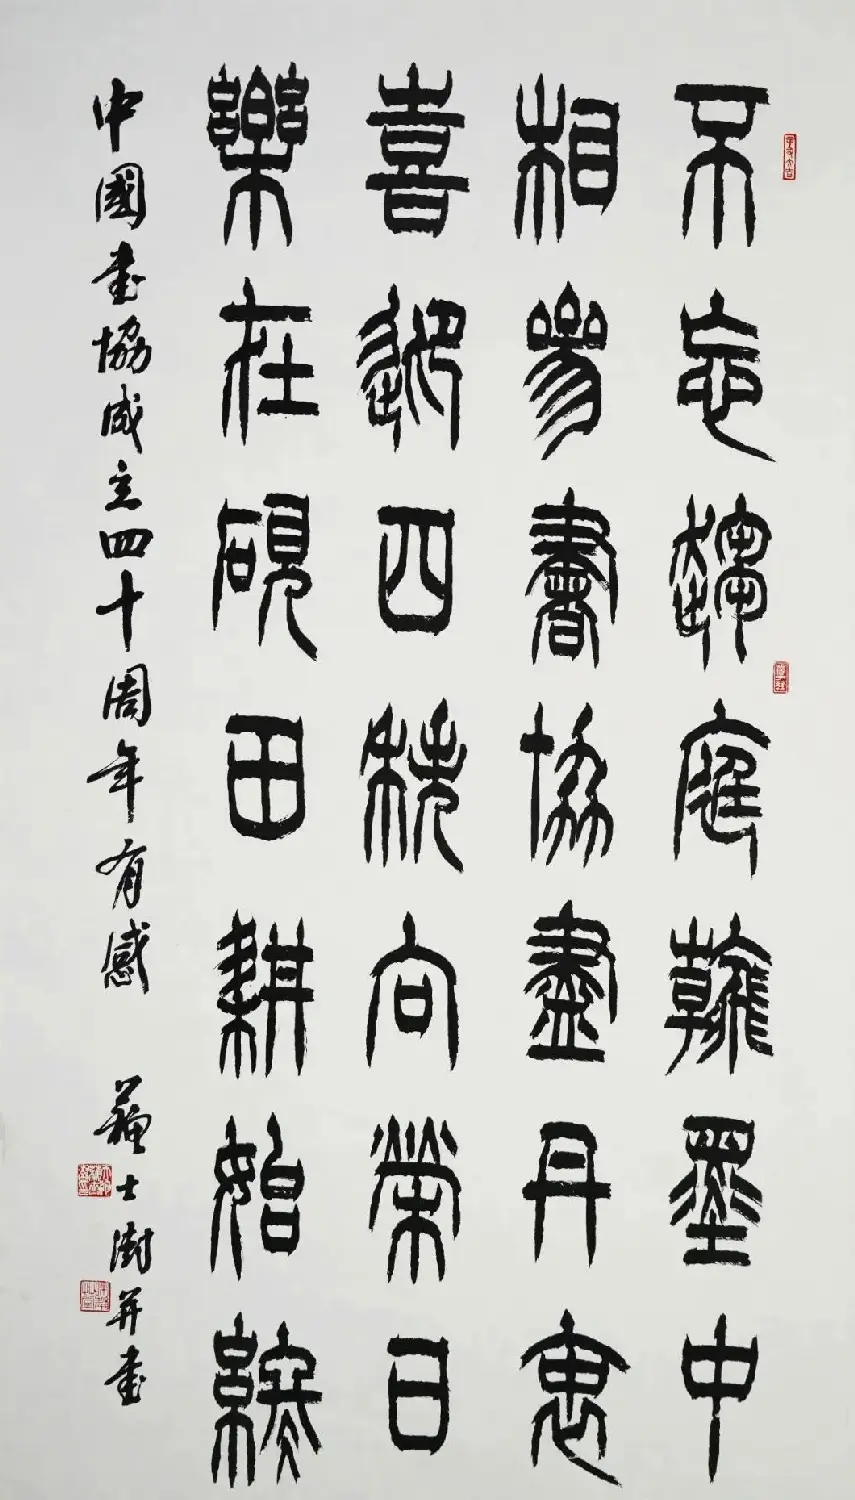 不忘趨庭翰墨中
相書協盡丹衷
喜迎四秩向榮日
樂在硯田耕始終
中國書協成立四十周年有感 蘇士澍并書